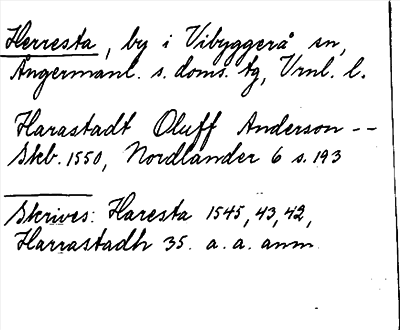 Herresta, by i Vibyggerå sn,
Ångermanl. s. doms. tg, Vrnl. l.
Harastadt Oluff Anderson --
Skb. 1550, Nordlander 6 s. 193
Skrives: Haresta 1545, 43, 42,
Harrastadh 35. a. a. anm